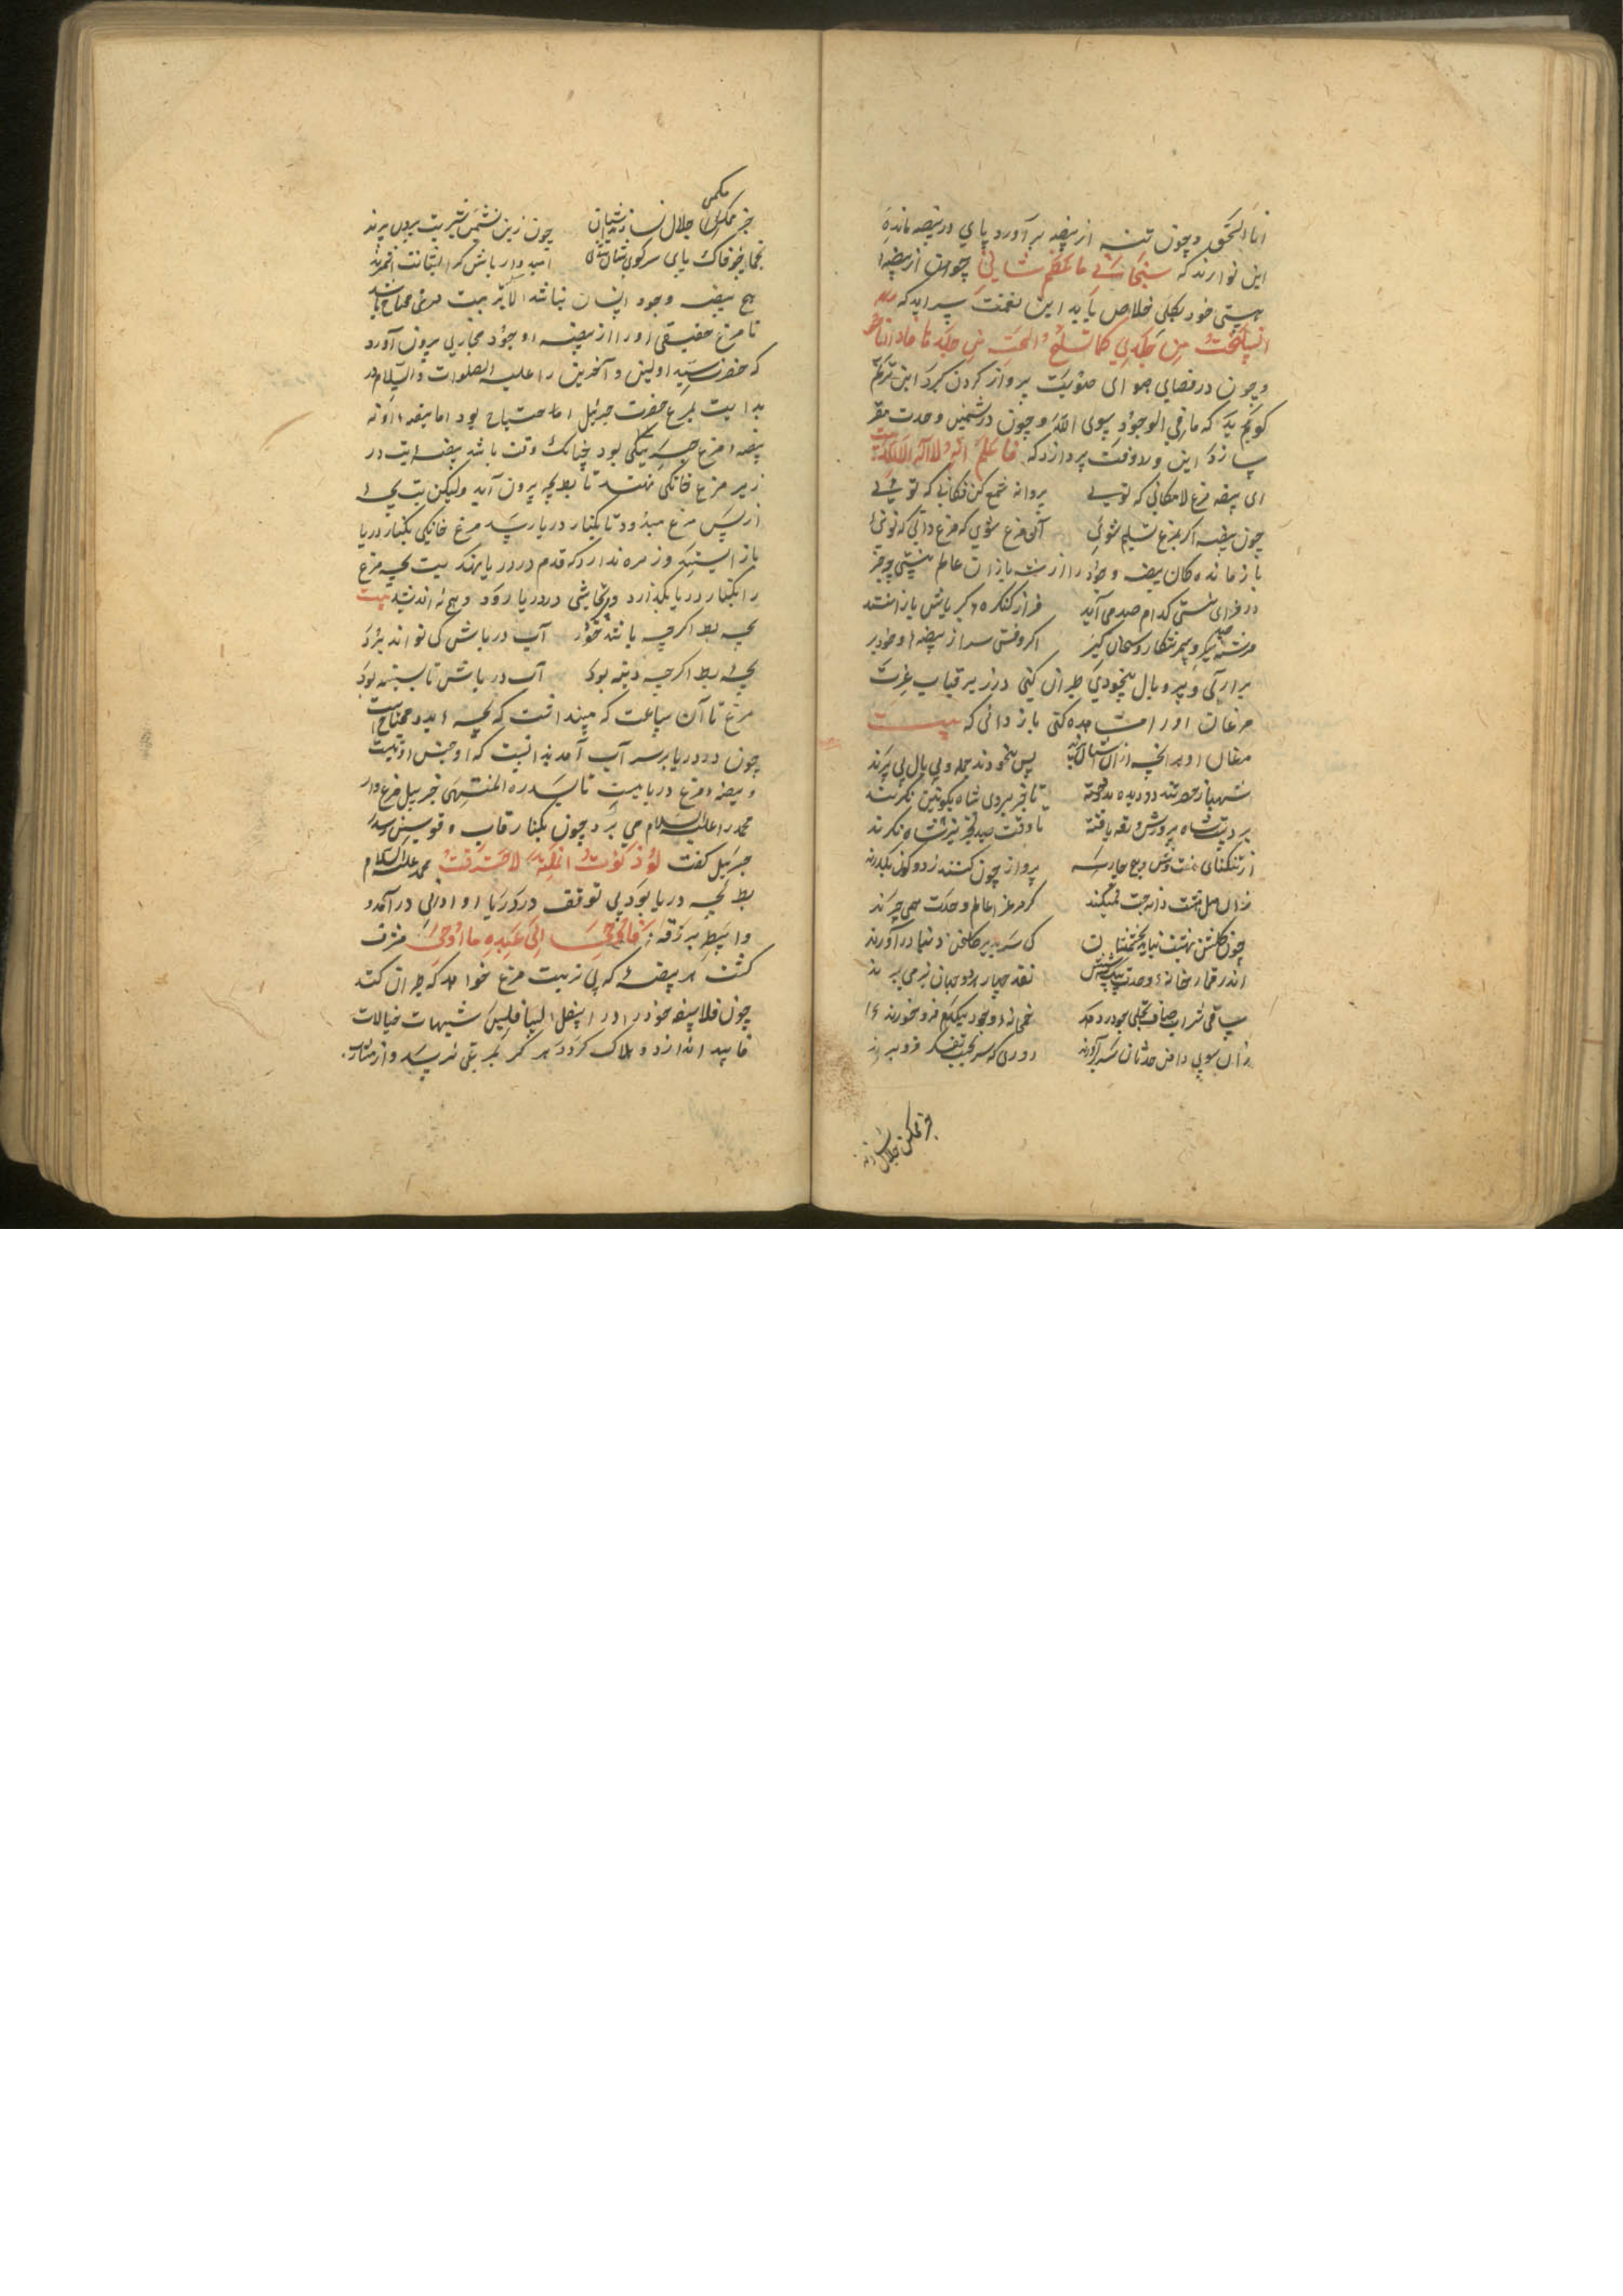 انا الحق و چون تنه از بیضه برآورد پای در بیضه مانده
این نوا زند که سبحانی ما اعظم شانی چون از بیضهٔ
هستی خود بکلی خلاص یابد این نغمت سراید که
انسلخت من جلدی کما تسلخ الحیة من جلدها فاذا انا هو
و چون در فضای هوای هویت پرواز کردن گیرد این ترنم
که ما فی الوجود سوی الله و چون در نشیمن وحدت مقر
سازد این ورد وقت پردازد که فاعلم انه لا اله الا الله بیت
ای بیضه مرغ لامکانی که تویی پروانه شمع کن فکانی که تویی
چون بیضه اگر بمرغ تسلیم شوی آن مرغ شوی که مرغ دانی که تویی
باز مانده کان بیضه وجود را از شه بازان عالم نیستی چه خبر
در هزای هستی کدام صد می آید
فراز کنگره کبریاش بازانند
فرشته صید و پیمبر شکار و سبحان گیر اگر وقتی سر از بیضهٔ وجود بر
بر آری و بپر و بال بیخودی طیران کنی در زیر قباب غیرت
مرغان او را مشاهده کنی باز دانی که بیت
مرغان او هر آنچه از آن آشیان پرند پس بیخودند جمله و بی بال و پی پرند
شهباز حضرتند دو دیده بدوخته تا جز بروی شاه بکونین ننگرند
بر دست شاه پرورش و طعمه یافته تا وقت صید جز شاه ننگرند
از تنگنای هفت و شش و پنج و چار و سه پرواز چون کنند ز دو کون بگذرند
زان میل هشت دانه جنت نمیکنند کز مرغزار عالم وحدت همی چرند
چون گلشن بهشت نیاید بچشمشان کی سر بدین گلخن دنیا درآورند
اندر قمار خانه وحدت بیک نفس نقد چهار هر دو جهان نیز می برند
ساقی شراب صاف تجلی چو در دهد خمخانه وجود بیکدم فرو خورند
زان سوی دامن حدثان سر برآورند روزی که سر بجیب تفکر فرو برند
جز تمکن جلال نسازند
جز تمکن جلال نسازند آشیان چون زین نشیمن بشریت بیرون پرند
نجم ار چه خاک پای سر کوی ایشان است امیدوار باش کز ایشانت نشمرند
هیچ بیضه وجود انسان نباشد الا بتربیت مرغی محتاج باشد
تا مرغ حقیقی او را از بیضه وجود مجازی بیرون آورد
که حضرت سید اولین و آخرین را علیه الصلوات والسلام در
بدایت بمرغ حضرت جبرئیل احتیاج بود اما بیضه او نه
بیضه مرغ جبرئیلی بود چنانک وقت باشد بیضه بط در
زیر مرغ خانگی نهند تا بط بچه بیرون آید ولیکن بط بچه
از پس مرغ میدود تا بکنار دریا رسد مرغ خانگی بکنار دریا
باز ایستد و زهره ندارد که قدم در دریا نهد بط بچه مرغ
را بکنار دریا بگذارد و بی تحاشی در دریا رود و هیچ نه اندیشد بیت
بچه بط اگر چه باشد خورد آب دریاش کی تواند برد
بچه بط اگر چه دینه بود آب دریاش تا بسینه بود
مرغ تا آن ساعت که میپنداشت که بچه بدو محتاج است
چون در دریا بر سر آب آمد بدانست که او جنس او نیست
و بیضه مرغ دریاییست تا سدره المنتهی جبرئیل مرغ وار
محمد را علیه السلام می برد چون بکنار قاب قوسین رسید
جبرئیل گفت لو دنوت انملة لاحترقت محمد علیه السلام
بط بچه دریا بود بی توقف در دریای او ادنی درآمد و
واسطه بدرقه فاوحی الی عبده ما اوحی مشرف
گشت هر بیضهٔ که بی تربیت مرغ خواهد که طیران کند
چون فلاسفه خود را در اسفل السافلین شبهات خیالات
فاسد اندازد و هلاک گردد هرگز بمرغی نرسد و از